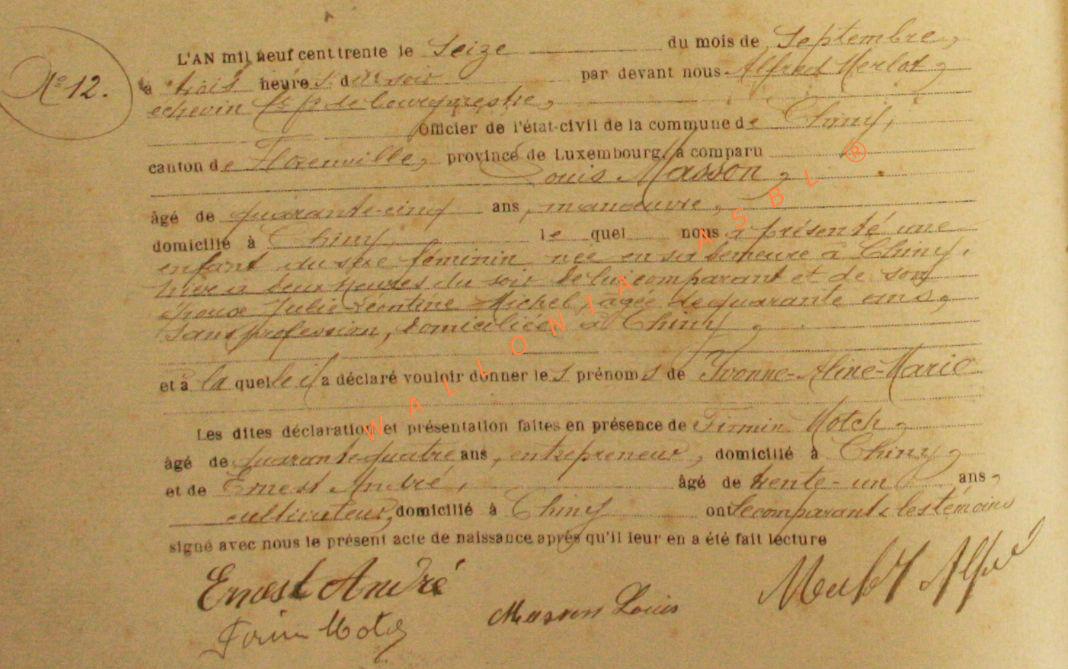 No 12.
L'AN mil neuf cent trente le seize du mois de Septembre,
à trois heures du soir par devant nous Alfred Merlot,
echevin de bourgmestre,
Officier de l'état-civil de la commune de Chiny,
canton de Florenville, province de Luxembourg, a comparu
Louis Masson,
âgé de quarante-cinq ans, manoeuvre,
domicilié à Chiny, le quel nous a présenté une
enfant du sexe féminin née en sa demeure à Chiny,
hier à deux heures du soir de lui comparant et de son
épouse Julie Léontine Michel, âgée de quarante ans,
sans profession, domiciliée à Chiny,
et à la quelle il a déclaré vouloir donner les prénoms de Yvonne-Aline-Marie
Les dites déclaration et présentation faites en présence de Firmin Motch,
âgé de quarante-quatre ans, entrepreneur, domicilié à Chiny,
et de Ernest André, âgé de trente-un ans,
cultivateur, domicilié à Chiny ont le comparant & les témoins
signé avec nous le présent acte de naissance après qu'il leur en a été fait lecture
Ernest André
Masson Louis
WALLONIA ASBL ®